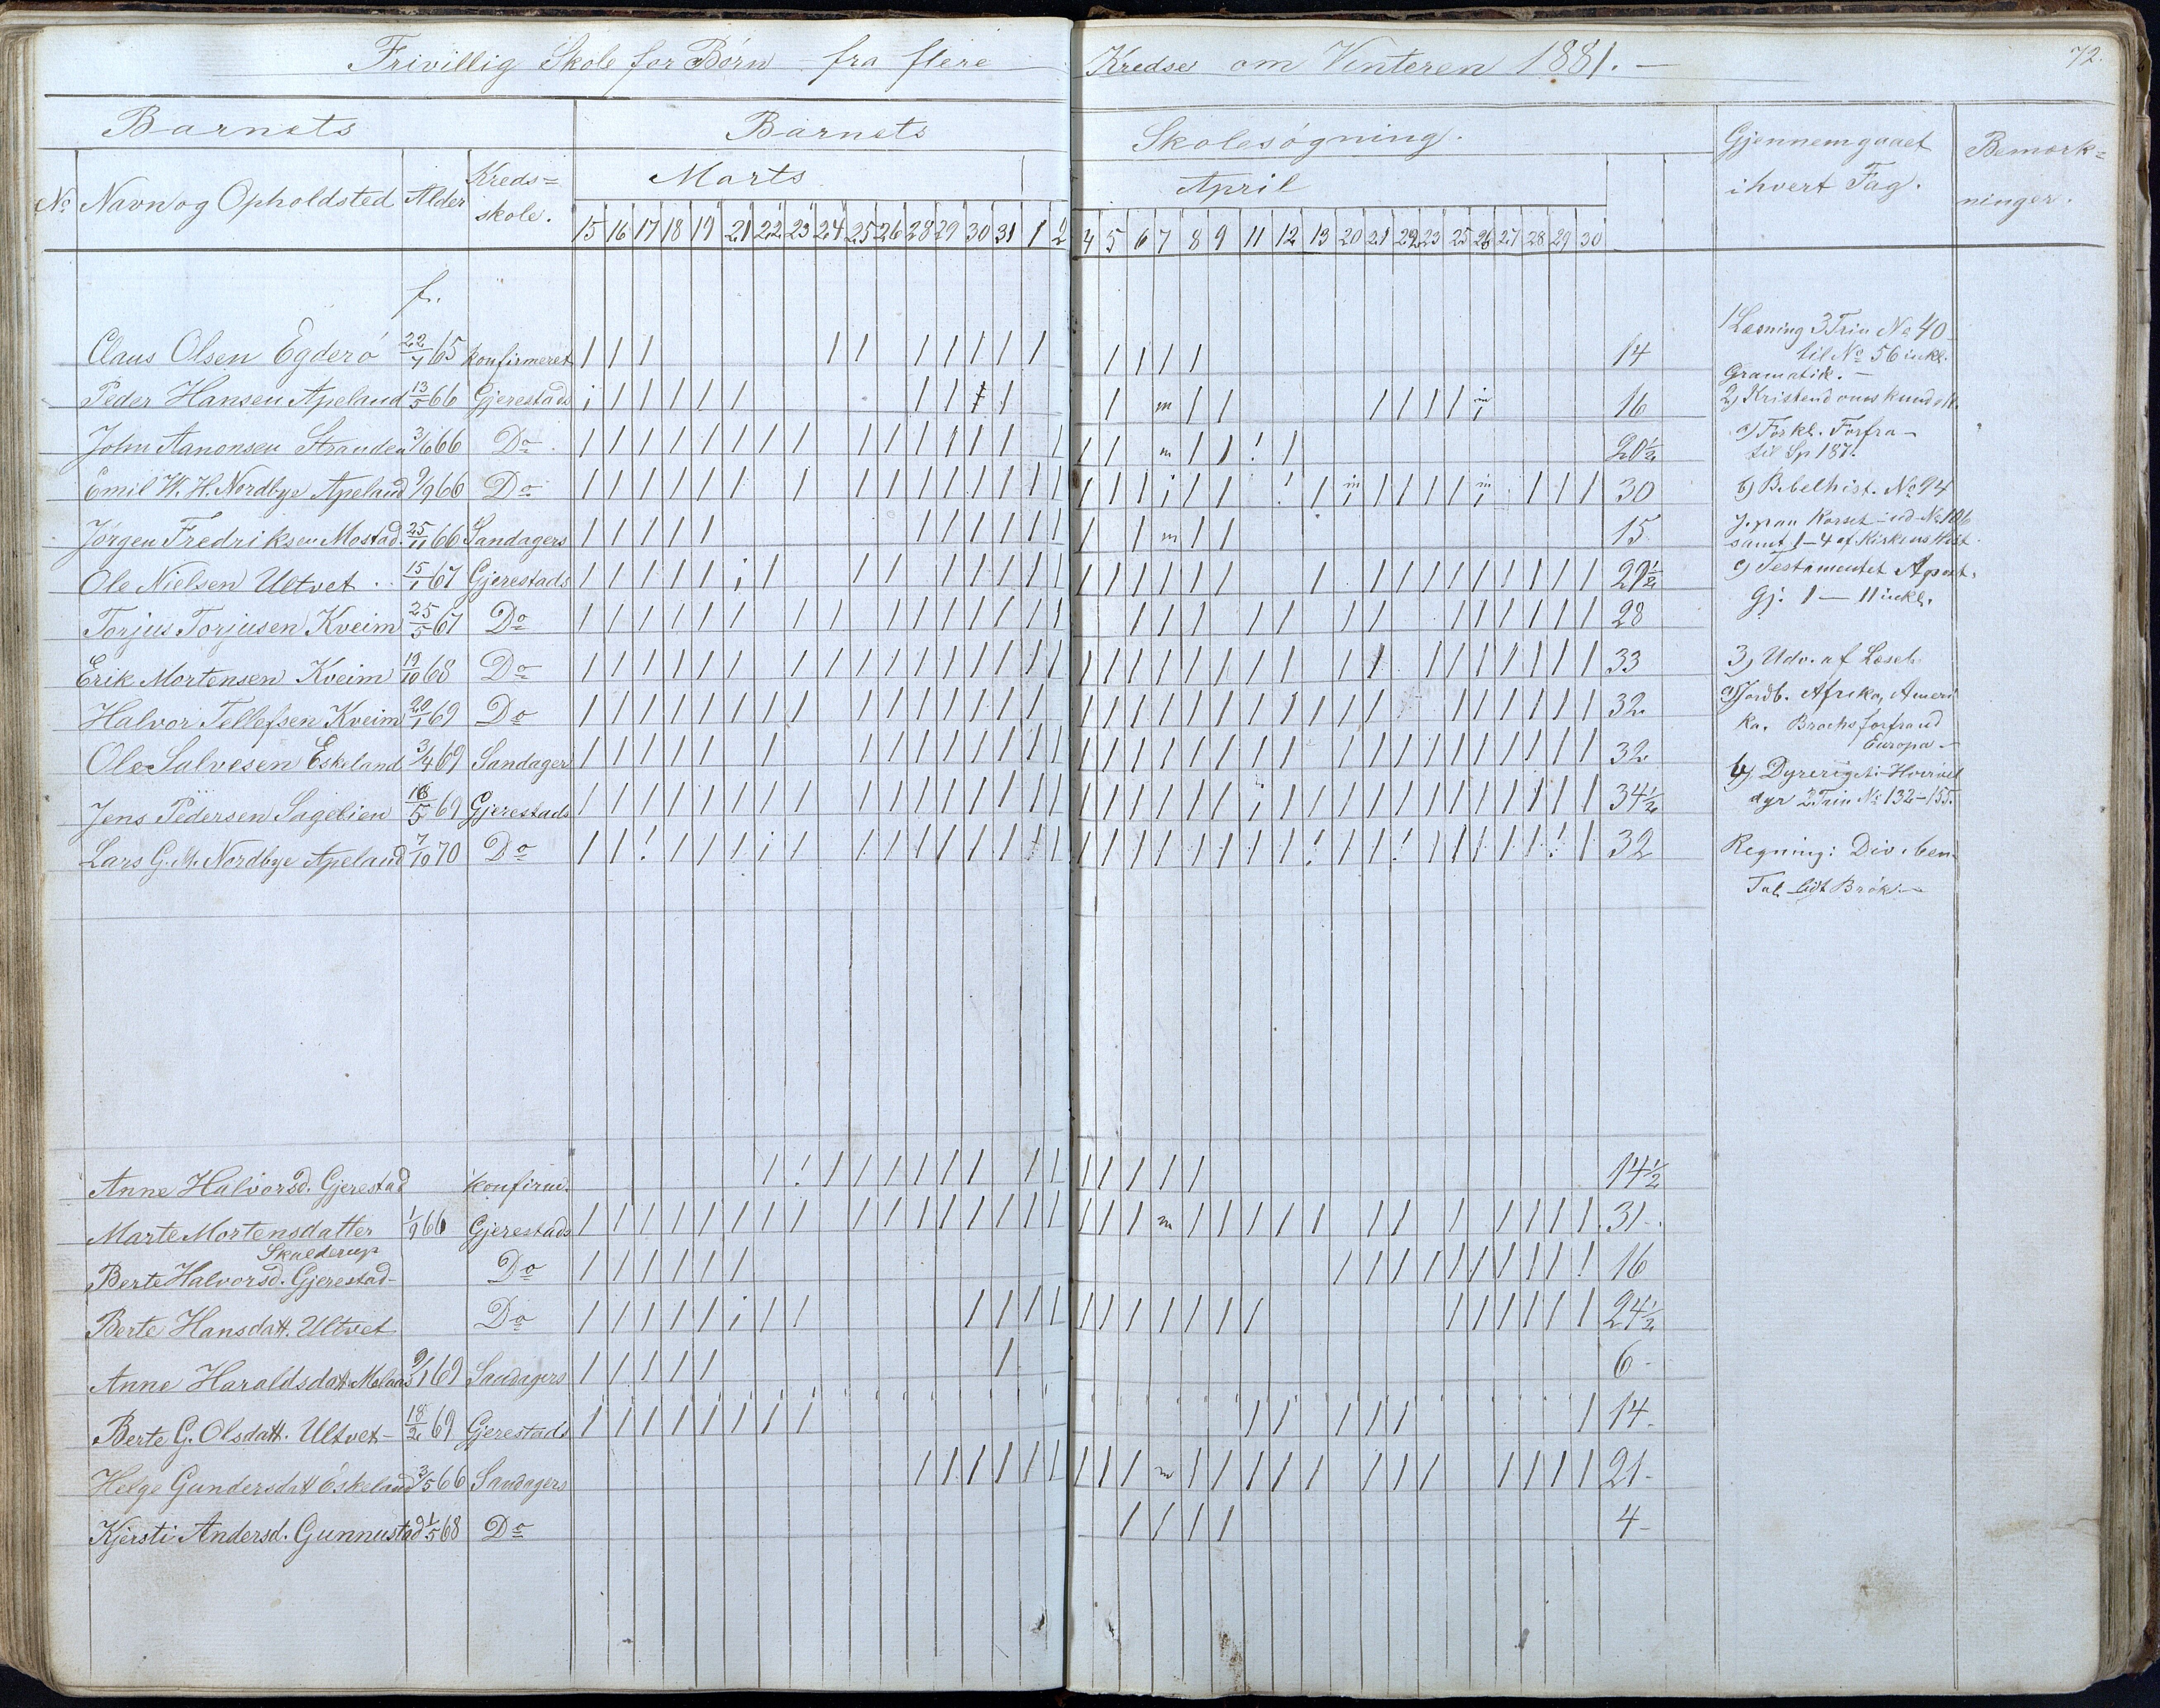 Frivillig Skole for Børn fra flere Kredse om Vinteren 1881. —
72.
Barnets Barnets Skolesøgning. Gjennemgaaet Bemærk=
i hvert Fag. ninger.
No Navn og Opholdsted Alder Kreds=
skole.
Marts April
15 16 17 18 19 21 22 23 24 25 26 28 29 30 31 1 2 4 5 6 7 8 9 11 12 13 20 21 22 23 25 26 27 28 29 30
f.
Claus Olsen Egderø 22/7 65 konfirmeret / / / / / / / / / / / / / / / 14
Peder Hansen Apeland 13/5 66 Gjerestads 16
John Aanonsen Stranden 3/6 66 Do 20½
Emil W. H. Nordbye Apeland 9/9 66 Do 30
Jørgen Fredriksen Mostad 25/11 66 Sandagers 15
Ole Nielsen Ultvet 15/1 67 Gjerestads 29½
Torjus Torjusen Kveim 25/5 67 Do 28
Erik Mortensen Kveim 19/10 68 Do 33
Halvor Tellefsen Kveim 20/1 69 Do 32
Ole Salvesen Eskeland 3/4 69 Sandager 32
Jens Pedersen Sagelien 18/5 69 Gjerestads 34½
Lars G. M. Nordbye Apeland 7/10 70 Do 32
Anne Halvorsd. Gjerestad konfirmd. 14½
Marte Mortensdatter 1/9 66 Gjerestads 31
Skulderup
Berte Halvorsd. Gjerestad Do 16
Berte Hansdatt. Ultvet Do 24½
Anne Haraldsdatt Molaas 9/1 69 Sandagers 6
Berte G. Olsdatt. Ultvet 18/2 69 Gjerestads 14
Helge Gundersdatt Eskeland 3/5 66 Sandagers 21
Kjersti Andersd. Gunnustad 1/5 68 Do 4
1 Læsning 3 Trin No 40
til No 56 inkl.
Gramatik. —
2) Kristendomskundsk.
a) Forkl. Forfra
til Sp 187.
b) Bibelhist. No 94
J. paa Korset ud No 106
samt 1–4 af Kirkens Hist.
c) Testamentet Apost.
Gj. 1 — 11 inkl.
3) Udv. af Læseb.
a) Jordb. Afrika, Ameri
ka. Brochs forfra ud
Europa
b) Dyreriget: Hvirvel
dyr 2 Trin No 132–155.
Regning: Div. ben.
Tal lidt Brøk. —